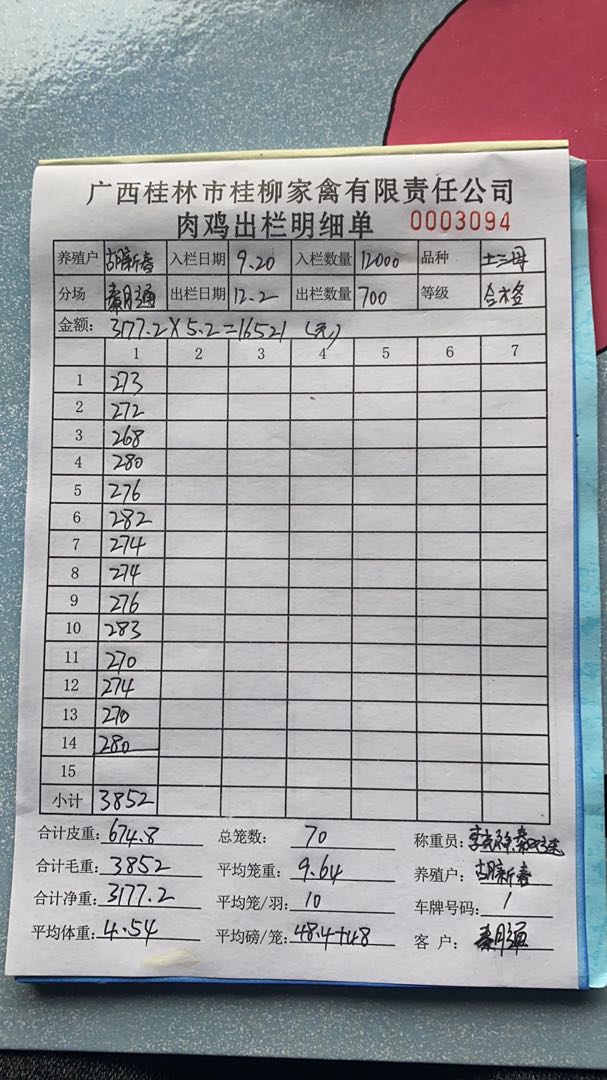 广西桂林市桂柳家禽有限责任公司
肉鸡出栏明细单 0003094
养殖户 胡新春 入栏日期 9.20 入栏数量 12000 品种 土三母
分场 秦明通 出栏日期 12.2 出栏数量 700 等级 合格
金额: 3177.2×5.2=16521 (元)
1 2 3 4 5 6 7
1 273
2 272
3 268
4 280
5 276
6 282
7 274
8 274
9 276
10 283
11 270
12 274
13 270
14 280
15
小计 3852
合计皮重: 674.8 总笼数: 70 称重员:
合计毛重: 3852 平均笼重: 9.64 养殖户: 胡新春
合计净重: 3177.2 平均笼/羽: 10 车牌号码: /
平均体重: 4.54 平均磅/笼: 48.4+48 客 户: 秦明通